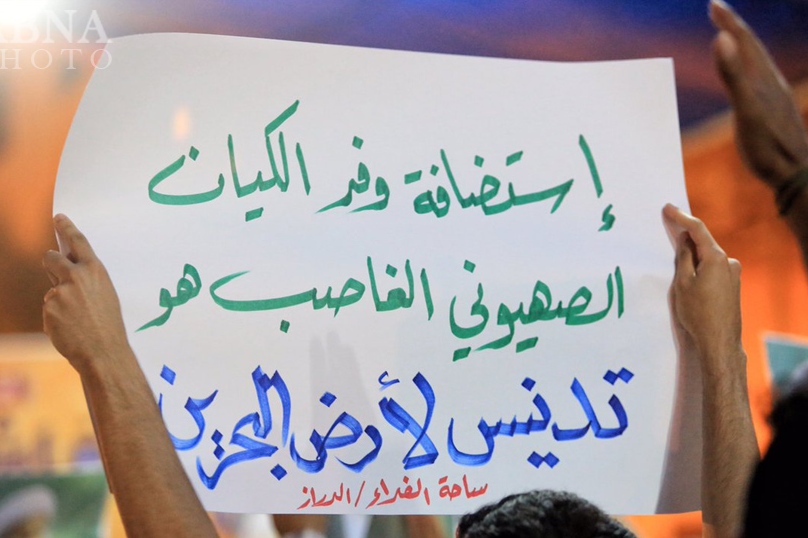 ABNA
PHOTO
إستضافة وفد الكيان
الصهيوني الغاصب هو
تدنيس لأرض البحرين
ساحة الفداء / الدراز